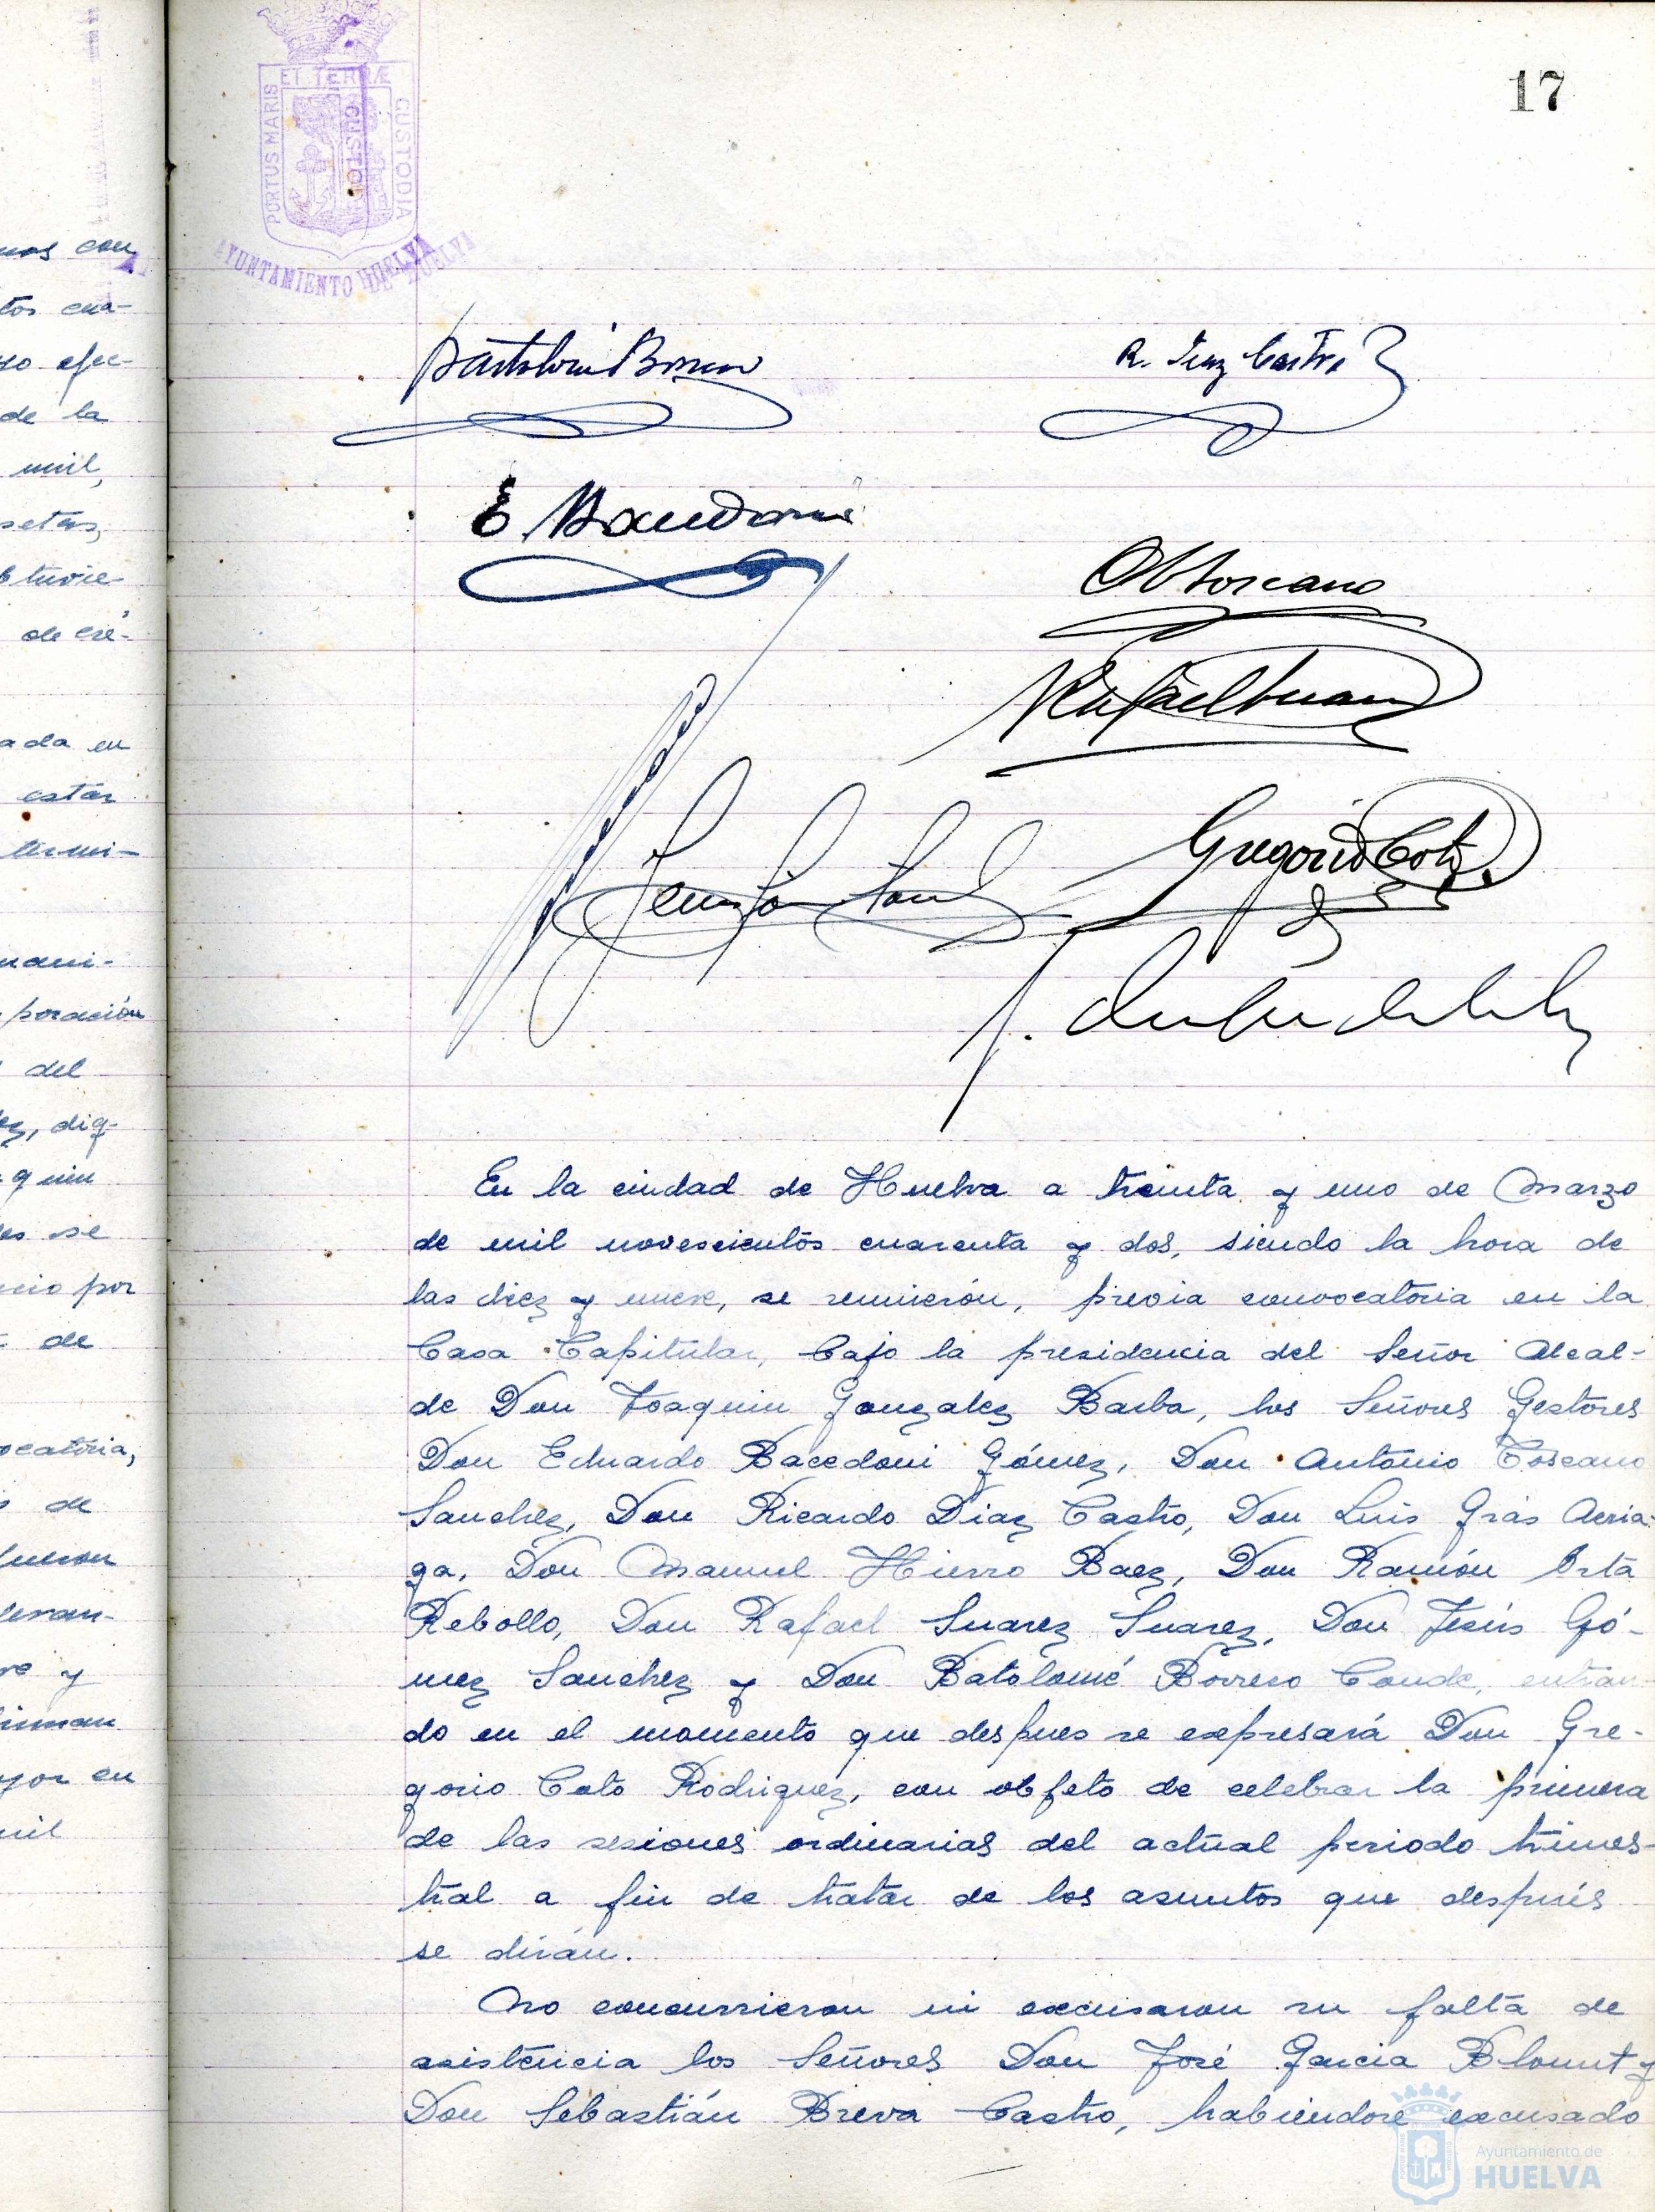 nos con
tos cua-
so efec-
de la
mil,
setas,
obtuvie-
de cré-
ada en
están
termi-
mani-
poración
del
ez, dig-
quin
es se
cio por
de
ocatoria,
de
fueron
levan-
re y
firman
yor en
mil
17
ET TERRÆ
PORTUS MARIS
CUSTODIA
AYUNTAMIENTO DE HUELVA
Bartolomé Borrero
R. Diaz Castro
E Bacedoni
A Toscano
Rafael Suarez
Jesus Gómez Sanchez
Gregorio Coto
En la ciudad de Huelva a treinta y uno de Marzo
de mil novescientos cuarenta y dos, siendo la hora de
las diez y nueve, se reunierón, previa convocatoria en la
Casa Capitular, bajo la presidencia del Señor Alcal-
de Don Joaquin Gonzalez Barba, los Señores Gestores
Don Eduardo Bacedoni Gómez, Don Antonio Toscano
Sanchez, Don Ricardo Diaz Castro, Don Luis Grás Arria-
ga, Don Manuel Hierro Baez, Don Ramón Orta
Rebollo, Don Rafael Suarez Suarez, Don Jesús Gó-
mez Sanchez y Don Batolomé Borrero Conde, entran-
do en el momento que despues se expresará Don Gre-
gorio Coto Rodriguez, con objeto de celebrar la primera
de las sesiones ordinarias del actual periodo trimes-
tral a fin de tratar de los asuntos que después
se dirán.
No concurrieron ni excusaron su falta de
asistencia los Señores Don José Garcia Blount y
Don Sebastián Breva Castro, habiendose excusado
Ayuntamiento de
HUELVA